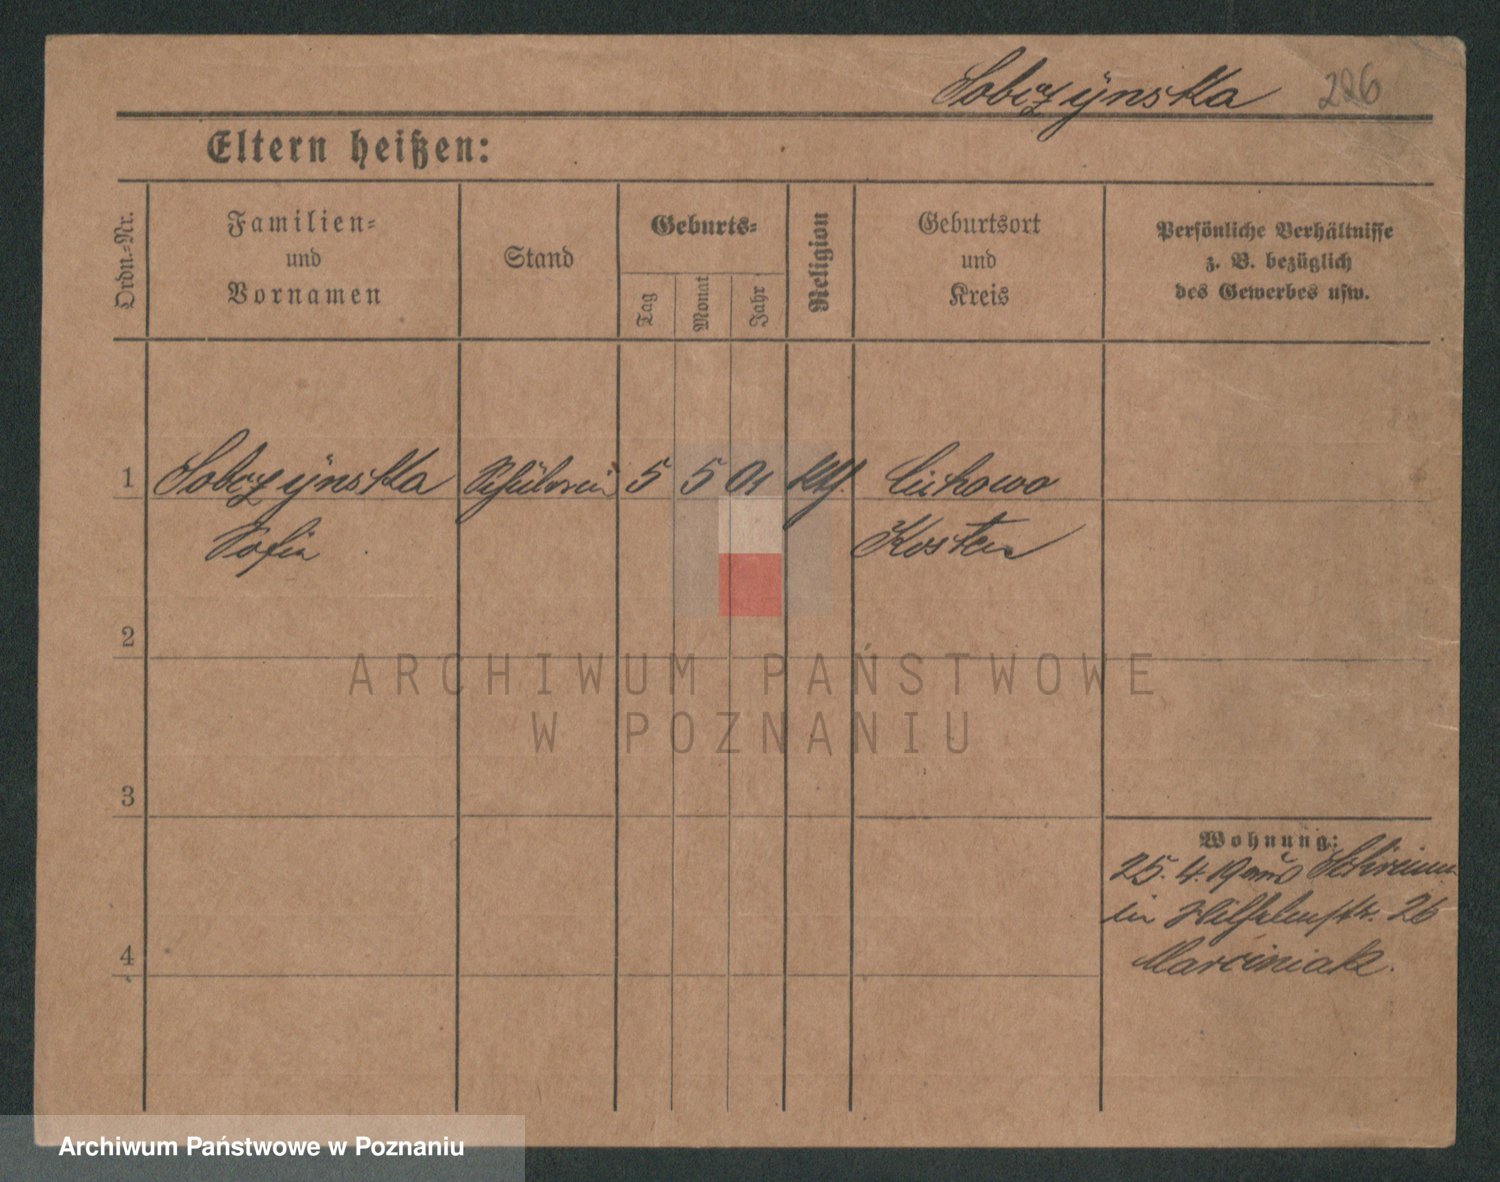 Sobczynska 226
Eltern heißen:
Ordn.-Nr.
Familien-
und
Vornamen
Stand
Geburts-
Tag
Monat
Jahr
Religion
Geburtsort
und
Kreis
Persönliche Verhältnisse
z. B. bezüglich
des Gewerbes usw.
1 Sobczynska Schülerin 5 5 01 kth.
Sofia Kosten
2
3
4
Wohnung:
25. 4. 19 aus Schrimm
in Wilhelmstr. 26
Marciniak.
ARCHIWUM PAŃSTWOWE
W POZNANIU
Archiwum Państwowe w Poznaniu